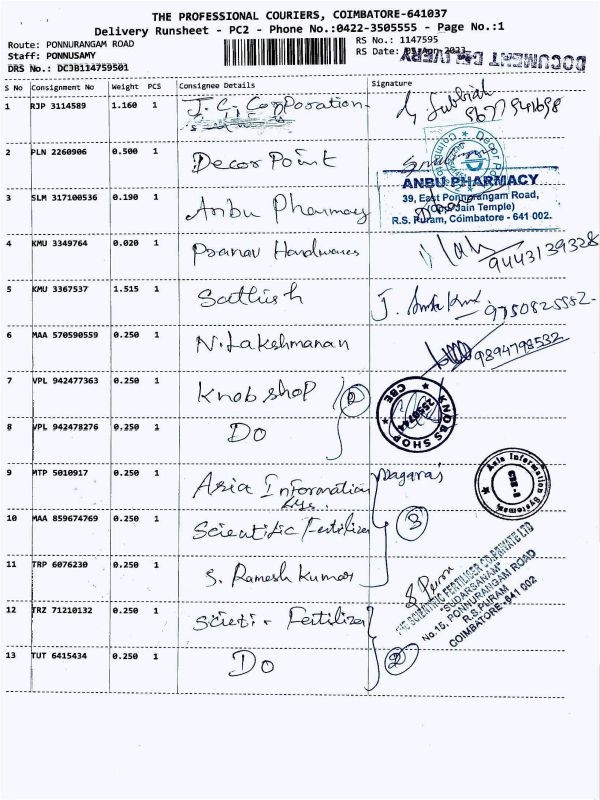 THE PROFESSIONAL COURIERS, COIMBATORE-641037
Delivery Runsheet - PC2 - Phone No.:0422-3505555 - Page No.:1
Route: PONNURANGAM ROAD
Staff: PONNUSAMY
DRS No.: DCJB114759501
RS No.: 1147595
RS Date:
DOCUMENT DELIVERY
S No Consignment No Weight PCS Consignee Details Signature
1 RJP 3114589 1.160 1 J. C. Corporation Subbiah
2 PLN 2260906 0.500 1 Decor Point
3 SLM 317100536 0.190 1 Anbu Pharmacy
ANBU PHARMACY
39, East Ponnurangam Road,
(Opp Jain Temple)
R.S. Puram, Coimbatore - 641 002.
4 KMU 3349764 0.020 1 Pranav Hardwares 9443139328
5 KMU 3367537 1.515 1 Sathish J. 9750825552
6 MAA 570590559 0.250 1 N. Lakshmanan 9894793532
7 VPL 942477363 0.250 1 Knob shop 2
KNOBS SHOP CBE 2550744
8 VPL 942478276 0.250 1 Do
9 MTP 5010917 0.250 1 Asia Information Sys.. Nagaraj
Asia Information Systems
10 MAA 859674769 0.250 1 Scientific Fertilizer 3
11 TRP 6076230 0.250 1 S. Ramesh Kumar
THE SCIENTIFIC FERTILISER CO PRIVATE LTD
"SUDARSANAM"
No.15, PONNURANGAM ROAD
R.S.PURAM
COIMBATORE-641 002
12 TRZ 71210132 0.250 1 Scieti. Fertilizer
13 TUT 6415434 0.250 1 Do 2